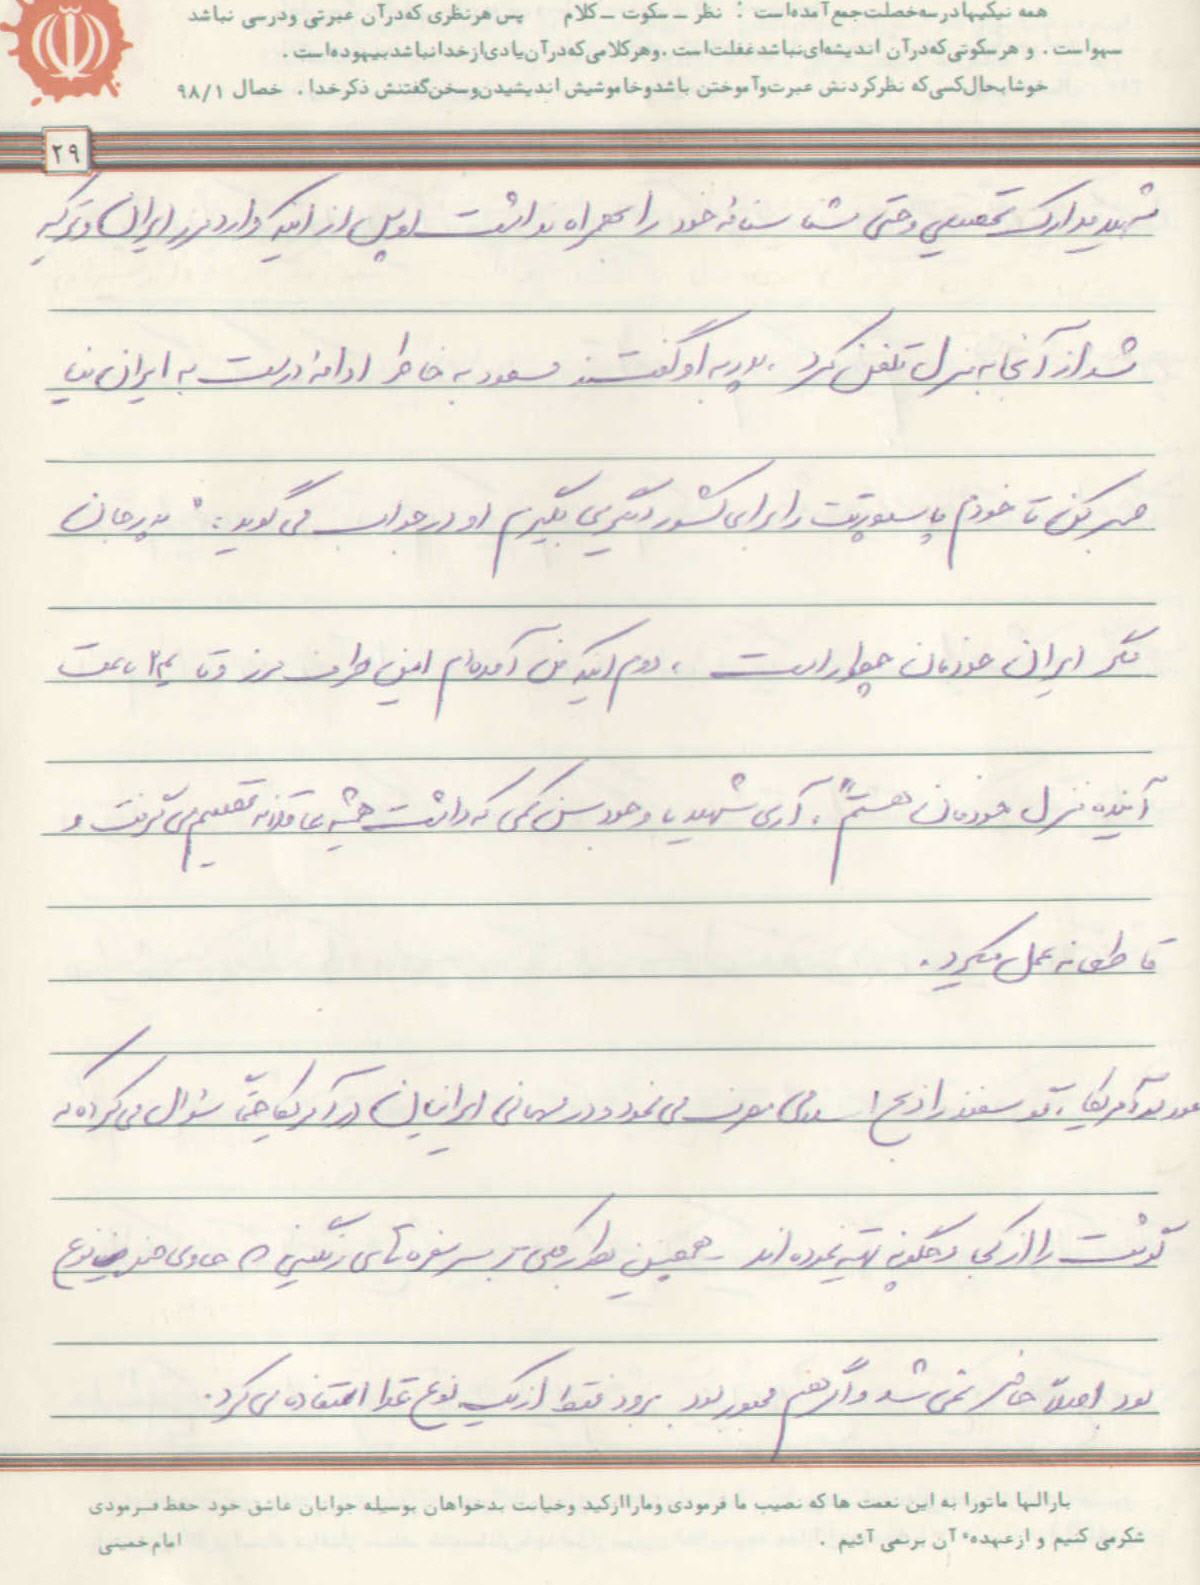 همه نیکیها در سه خصلت جمع آمده است : نظر ـ سکوت ـ کلام پس هر نظری که در آن عبرتی و درسی نباشد
سهو است . و هر سکوتی که در آن اندیشه‌ای نباشد غفلت است . و هر کلامی که در آن یادی از خدا نباشد بیهوده است .
خوشا بحال کسی که نظر کردنش عبرت و آموختن باشد و خاموشیش اندیشیدن و سخن گفتنش ذکر خدا . خصال ۹۸/۱
۲۹
شهید مدارک تحصیلی و حتی شناسنامه خود را بهمراه نداشت او پس از اینکه وارد مرز ایران و ترکیه
شد از آنجا به منزل تلفن کرد ، پدر به او گفتند مسعود به خاطر ادامه درست به ایران نیا
صبر بکن تا خودم پاسپورتت را برای کشور دیگری بگیرم او در جواب می گوید : " پدر جان
مگر ایران خودمان چطور است ، دوم اینکه من آمده‌ام این طرف مرز و تا ۲۴ ساعت
آینده منزل خودمان هستم " ، آری شهید با وجود سن کمی که داشت همیشه عاقلانه تصمیم می گرفت و
قاطعانه عمل میکرد .
آمریکا ، گوسفند را ذبح اسلامی مصرف می نمود و در مهمانی ایرانیان در آمریکا حتماً سئوال می کرد که
گوشت را از کجا و چگونه تهیه نموده اند ـ همچنین بطور کلی بر سر سفره های رنگینی که حاوی چندین نوع
بود اصلاً حاضر نمی شد و اگر هم مجبور بود برود فقط از یک نوع غذا استفاده می کرد .
بارالها ما تو را به این نعمت ها که نصیب ما فرمودی و ما را از کید و خیانت بدخواهان بوسیله جوانان عاشق خود حفظ فرمودی
شکر می کنیم و از عهدهء آن برنمی آئیم . امام خمینی